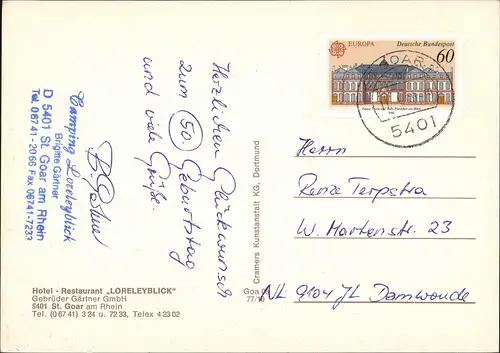 Herzlichen Glückwunsch
zum 50. Geburtstag
und viele Grüße.
Camping Loreleyblick
Brigitte Gärtner
D 5401 St. Goar am Rhein
Tel. 06741-2066 Fax 06741-7233
Hotel - Restaurant „LORELEYBLICK"
Gebrüder Gärtner GmbH
5401 St. Goar am Rhein
Tel. (06741) 324 u. 7233, Telex 42302
Cramers Kunstanstalt KG, Dortmund
Goa
77/10
EUROPA
Deutsche Bundespost
60
GOAR
5401
Herrn
Renze Terpstra
W. Martenstr. 23
NL 9104 JL Damwoude